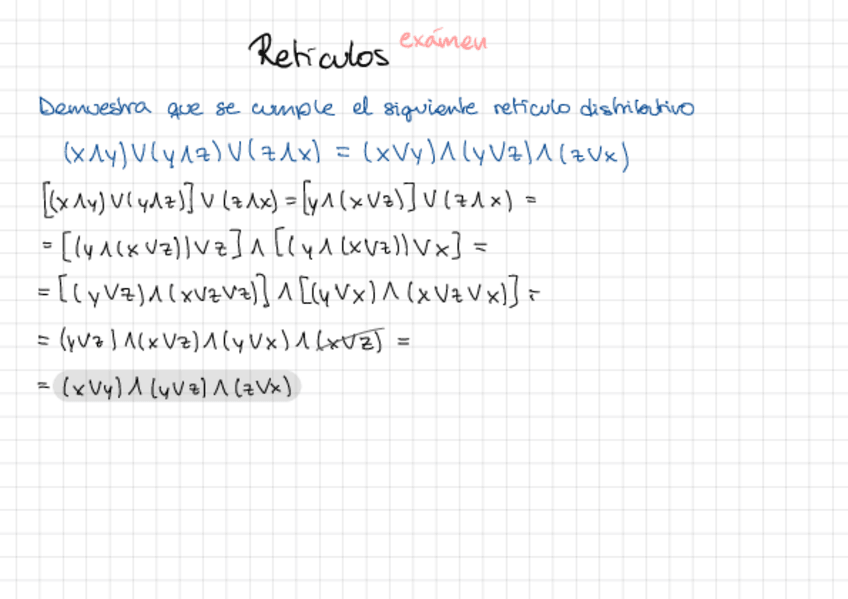 Retículos exámen
Demuestra que se cumple el siguiente retículo distributivo
(x∧y)∨(y∧z)∨(z∧x) = (x∨y)∧(y∨z)∧(z∨x)
[(x∧y)∨(y∧z)]∨(z∧x) = [y∧(x∨z)]∨(z∧x) =
= [(y∧(x∨z))∨z]∧[(y∧(x∨z))∨x] =
= [(y∨z)∧(x∨z∨z)]∧[(y∨x)∧(x∨z∨x)] =
= (y∨z)∧(x∨z)∧(y∨x)∧(x∨z) =
= (x∨y)∧(y∨z)∧(z∨x)